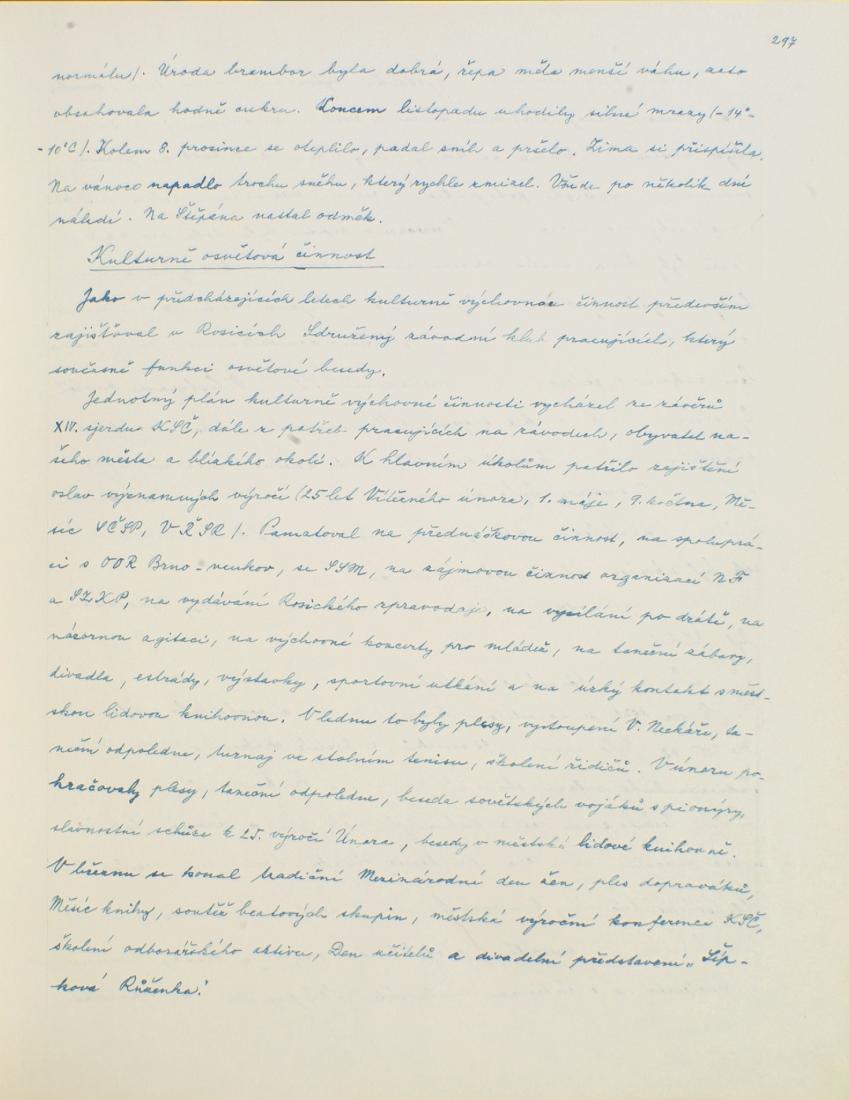 297
normálu/. Úroda brambor byla dobrá, řepa měla menší váhu, zato
obsahovala hodně cukru. Koncem listopadu uhodily silné mrazy (-14°-
-10°C/. Kolem 8. prosince se oteplilo, padal sníh a pršelo. Zima si přispíšila.
Na vánoce napadlo trochu sněhu, který rychle zmizel. Všude po několik dní
náledí. Na Štěpána nastal odměk.
Kulturně osvětová činnost
Jako v předcházejících letech kulturně výchovnou činnost především
zajišťoval v Rosicích Sdružený závodní klub pracujících, který
současně funkci osvětové besedy.
Jednotný plán kulturně výchovné činnosti vycházel ze závěrů
XIV. sjezdu KSČ, dále z potřeb pracujících na závodech, obyvatel na-
šeho města a blízkého okolí. K hlavním úkolům patřilo zajištění
oslav významných výročí (25 let Vítězného února, 1. máje, 9. května, Mě-
síc ČSP, VŘSR/. Pamatoval na přednáškovou činnost, na spoluprá-
ci s OOR Brno-venkov, se SSM, na zájmovou činnost organizací NF
a SZKP, na vydávání Rosického zpravodaje, na vysílání po drátě, na
názornou agitaci, na výchovné koncerty pro mládež, na taneční zábavy,
divadla, estrády, výstavky, sportovní utkání a na úzký kontakt s měst-
skou lidovou knihovnou. V lednu to byly plesy, vystoupení V. Neckáře, ta-
neční odpoledne, turnaj ve stolním tenisu, školení řidičů. V únoru po-
kračovaly plesy, taneční odpoledne, beseda sovětských vojáků s pionýry,
slavnostní schůze k 25. výročí Února, besedy v městské lidové knihovně.
V březnu se konal tradiční Mezinárodní den žen, ples dopraváků,
Měsíc knihy, soutěž beatových skupin, městská výroční konference KSČ,
školení odborářského aktivu, Den učitelů a divadelní představení „Šíp-
ková Růženka."